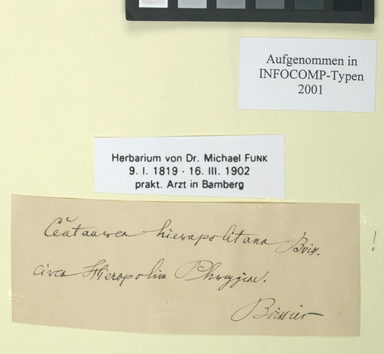 Aufgenommen in
INFOCOMP-Typen
2001
Herbarium von Dr. Michael FUNK
9. I. 1819 - 16. III. 1902
prakt. Arzt in Bamberg
Centaurea hieropolitana Boiss.
!
circa Hieropolin Phrygiae.
Boissier